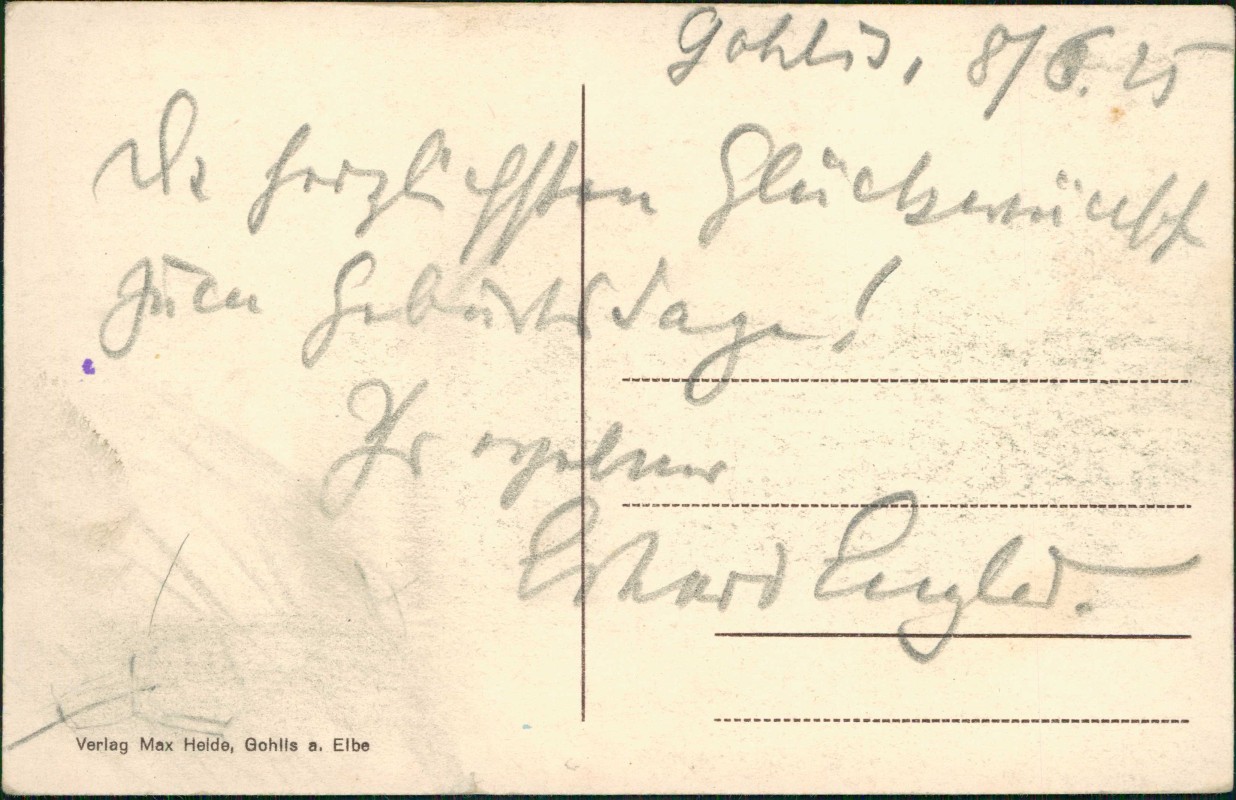 Gohlis, 8/6. 25
Die herzlichsten Glückwünsche
zum Geburtstage!
Ihr ergebener
Erhard
Verlag Max Heide, Gohlis a. Elbe